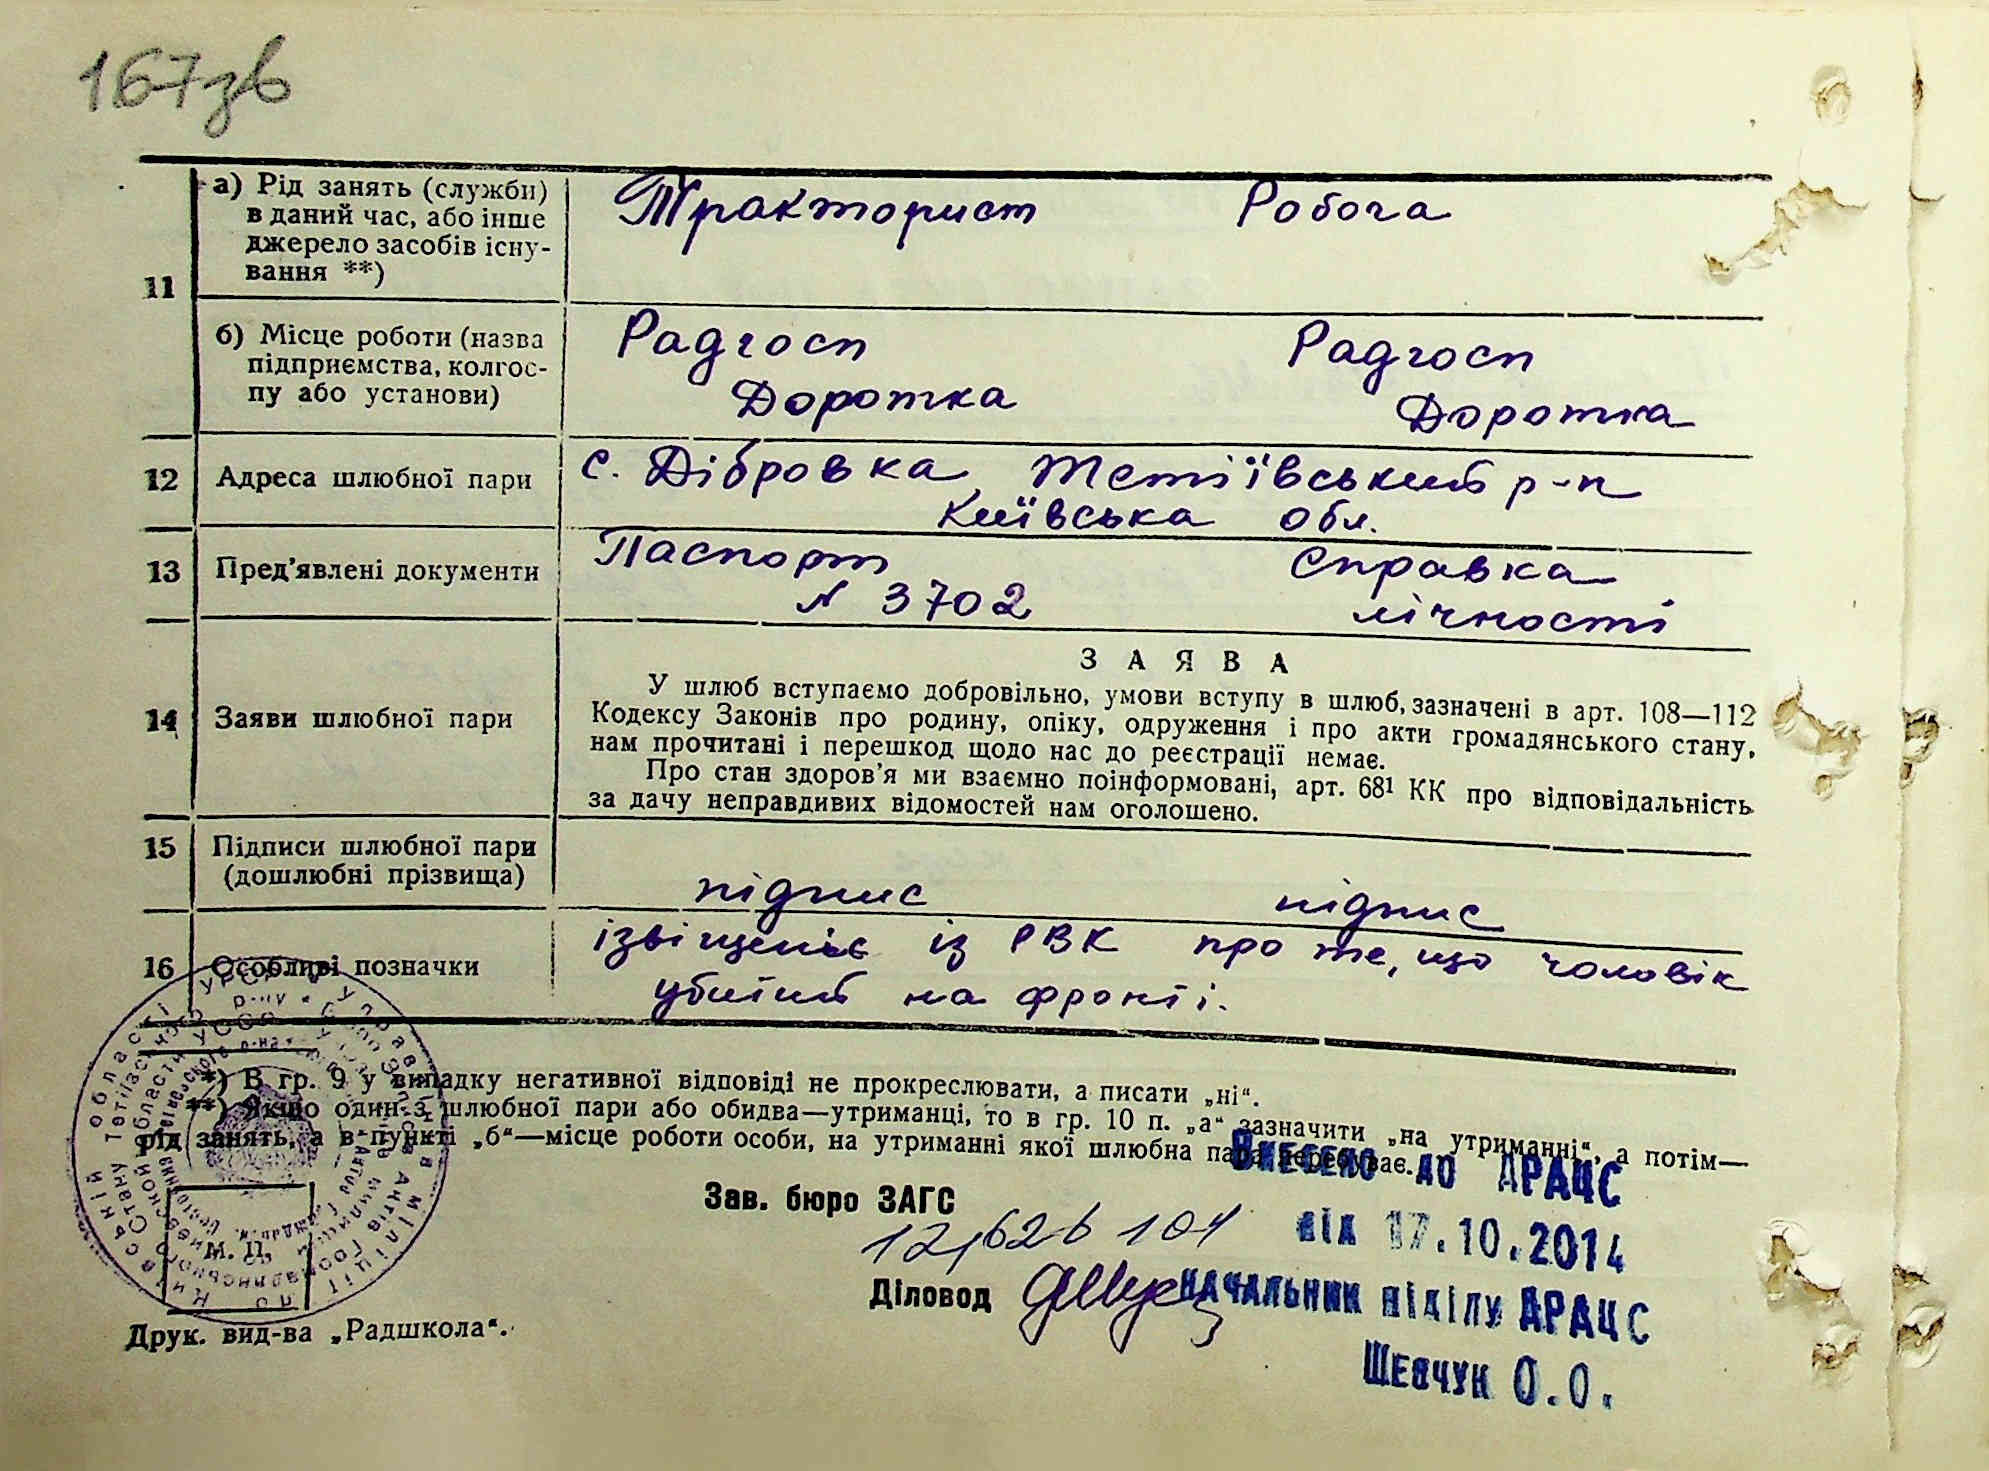 167зв
11
а) Рід занять (служби)
в даний час, або інше
джерело засобів існу-
вання **)
Тракторист Робоча
б) Місце роботи (назва
підприємства, колгос-
пу або установи)
Радгосп Радгосп
Доротка Доротка
12 Адреса шлюбної пари
с. Дібровка Тетіївський р-н
Київська обл.
13 Пред'явлені документи
Паспорт Справка
N 3702 лічності
14 Заяви шлюбної пари
ЗАЯВА
У шлюб вступаємо добровільно, умови вступу в шлюб, зазначені в арт. 108—112
Кодексу Законів про родину, опіку, одруження і про акти громадянського стану,
нам прочитані і перешкод щодо нас до реєстрації немає.
Про стан здоров'я ми взаємно поінформовані, арт. 68¹ КК про відповідальність
за дачу неправдивих відомостей нам оголошено.
15 Підписи шлюбної пари
(дошлюбні прізвища)
підпис підпис
16 Особливі позначки
ізвіщеніє із РВК про те, що чоловік
убитий на фронті.
*) В гр. 9 у випадку негативної відповіді не прокреслювати, а писати „ні“.
**) Якщо один з шлюбної пари або обидва—утриманці, то в гр. 10 п. „а“ зазначити „на утриманні“, а потім—
рід занять, а в пункті „б“—місце роботи особи, на утриманні якої шлюбна пара перебуває.
Внесено до ДРАЦС
від 17.10.2014
Начальник відділу ДРАЦС
Шевчук О.О.
Зав. бюро ЗАГС
Діловод
М. П.
Друк. вид-ва „Радшкола“.